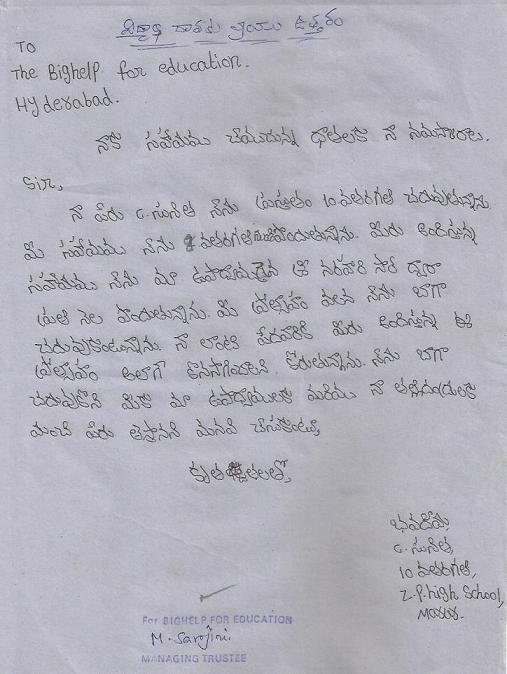 విద్యార్థి రాశారు వ్రాయు ఉత్తరం
To
The Bighelp for education.
Hyderabad.
నాకు సహాయము చేయుచున్న దాతలకు నా నమస్కారాలు.
Sir,
నా పేరు C. సునీత నేను ప్రస్తుతం 10వతరగతి చదువుతున్నాను
మీ సహాయము నేను వతరగతి పొందుతున్నాను. మీరు అందిస్తున్న
సహాయము నేను మా ఉపాధ్యాయుడైన శ్రీ నరహరి సార్ ద్వారా
ప్రతి నెల పొందుతున్నాను. మీ ప్రోత్సాహం వలన నేను బాగా
చదువుకుంటున్నాను. నా లాంటి పేదవారికి మీరు అందిస్తున్న ఈ
ప్రోత్సాహం అలాగే కొనసాగించాలని. కోరుతున్నాను. నేను బాగా
చదువుకొని మీకు మా ఉపాధ్యాయులకు మరియు నా తల్లిదండ్రులకు
మంచి పేరు తెస్తానని మనవి చేసుకుంటూ
కృతజ్ఞతలతో,
భవదీయ
C. సునీత,
10 వతరగతి,
Z.P. high School,
For BIGHELP FOR EDUCATION
M. Sarojini
MANAGING TRUSTEE